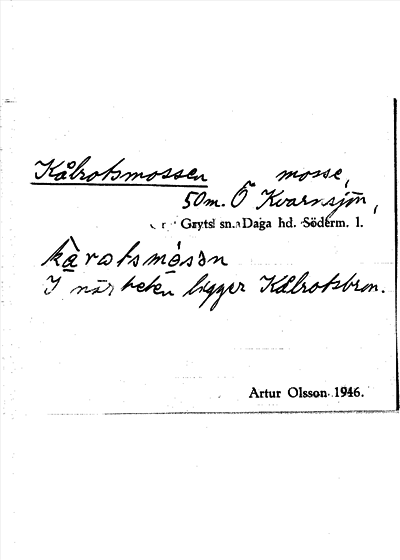 Kålrotsmossen mosse,
50m. Ö Kvarnsjön,
Gryts sn. Daga hd. Söderm. l.
kàrotsmósən
I närheten ligger Kålrotsbron.
Artur Olsson 1946.